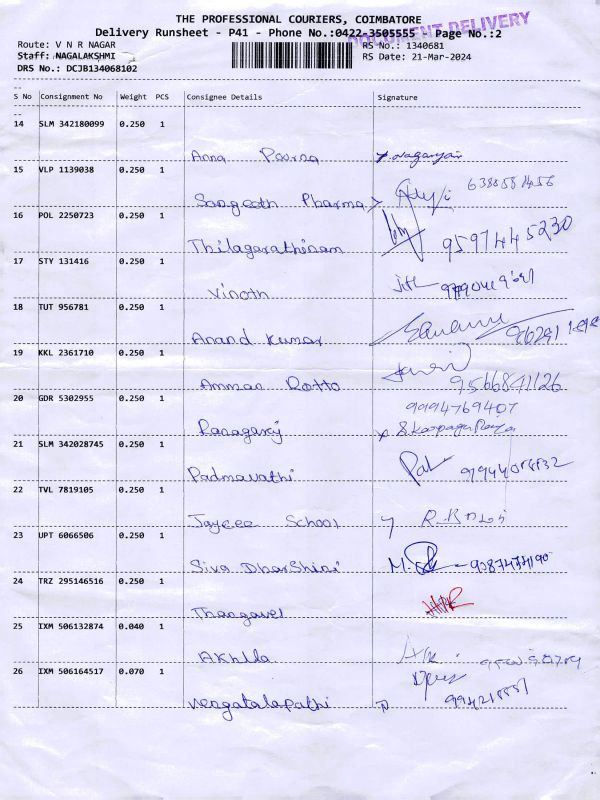 THE PROFESSIONAL COURIERS, COIMBATORE
DOCUMENT DELIVERY
Delivery Runsheet - P41 - Phone No.:0422-3505555 - Page No.:2
Route: V N R NAGAR RS No.: 1340681
Staff: NAGALAKSHMI RS Date: 21-Mar-2024
DRS No.: DCJB134068102
S No Consignment No Weight PCS Consignee Details Signature
14 SLM 342180099 0.250 1
Anna Poorna
15 VLP 1139038 0.250 1
Sangeeth Pharma 6388581456
16 POL 2250723 0.250 1
Thilagarathinam 9597445230
17 STY 131416 0.250 1
Vinoth
18 TUT 956781 0.250 1
Anand Kumar
19 KKL 2361710 0.250 1
Amman Rotto 9566841126
20 GDR 5302955 0.250 1
9994769407
21 SLM 342028745 0.250 1
Padmavathi
22 TVL 7819105 0.250 1
Jaycee School
23 UPT 6066506 0.250 1
Siva DharShini
24 TRZ 295146516 0.250 1
Thangavel
25 IXM 506132874 0.040 1
Akhila
26 IXM 506164517 0.070 1